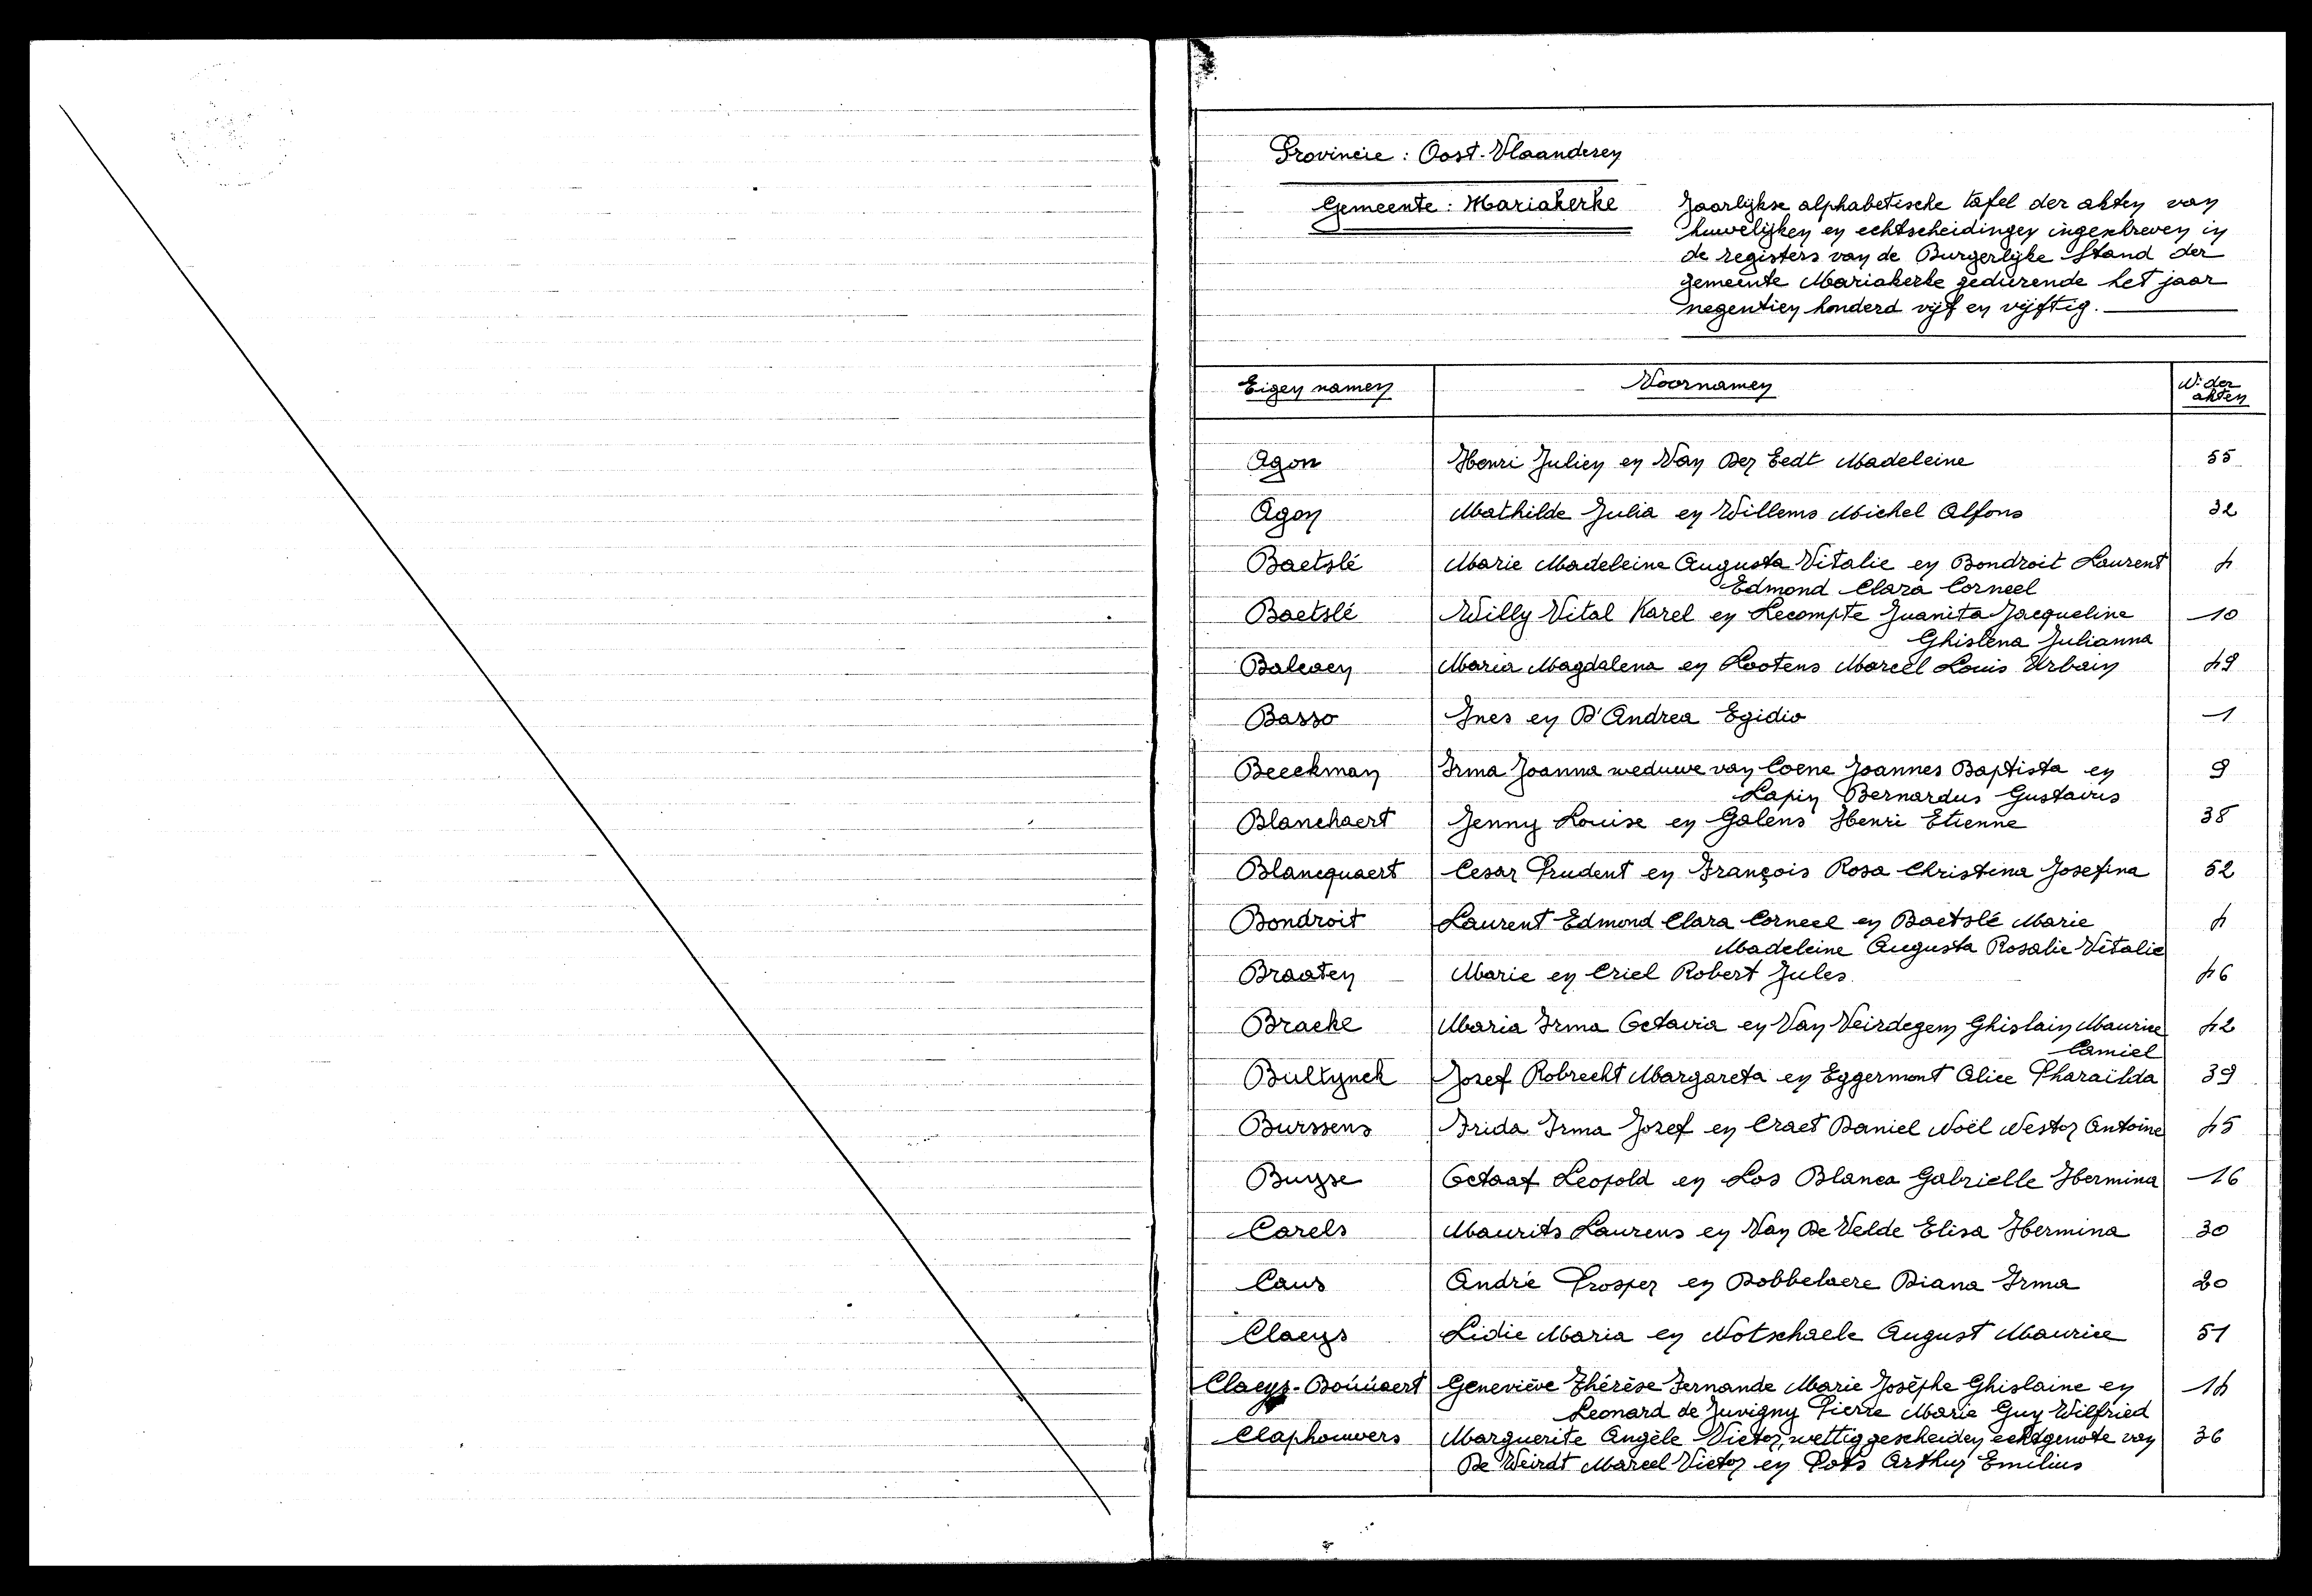 Provincie : Oost-Vlaanderen
Gemeente : Mariakerke
Jaarlijkse alphabetische tafel der akten van
huwelijken en echtscheidingen ingeschreven in
de registers van de Burgerlijke Stand der
gemeente Mariakerke gedurende het jaar
negentien honderd vijf en vijftig.
Eigen namen Voornamen Nr der
akten
Agon Henri Julien en Van Der Eedt Madeleine 55
Agon Mathilde Julia en Willems Michel Alfons 32
Baetslé Marie Madeleine Augusta Vitalie en Bondroit Laurent 4
Edmond Clara Corneel
Baetslé Willy Vital Karel en Lecompte Juanita Jacqueline 10
Ghislena Julianna
Balcaen Maria Magdalena en Lootens Marcel Louis Urbain 49
Basso Ines en D'Andrea Egidio 1
Beeckman Irma Joanna weduwe van Coene Joannes Baptista en 9
Lapin Bernardus Gustavus
Blanchaert Jenny Louise en Galens Henri Etienne 38
Blancquaert Cesar Prudent en François Rosa Christina Josefina 52
Bondroit Laurent Edmond Clara Corneel en Baetslé Marie 4
Madeleine Augusta Rosalie Vitalie
Braaten Marie en Criel Robert Jules 46
Bracke Maria Irma Octavia en Van Veirdegem Ghislain Maurice 42
Camiel
Bultynck Jozef Robrecht Margareta en Eggermont Alice Pharaïlda 39
Burssens Frida Irma Jozef en Craet Daniel Noël Nestor Antoine 45
Buyse Octaaf Leopold en Los Blanca Gabrielle Hermina 16
Carels Maurits Laurens en Van De Velde Elisa Hermina 30
Caus André Prosper en Dobbelaere Diana Irma 20
Claeys Lidie Maria en Notschaele August Maurice 51
Claeys-Boúúaert Geneviève Thérèse Fernande Marie Josèphe Ghislaine en 14
Leonard de Juvigny Pierre Marie Guy Wilfried
Claphouwers Marguerite Angèle Victor, wettig gescheiden echtgenote van 36
De Weirdt Marcel Victor en Pots Arthur Emilius